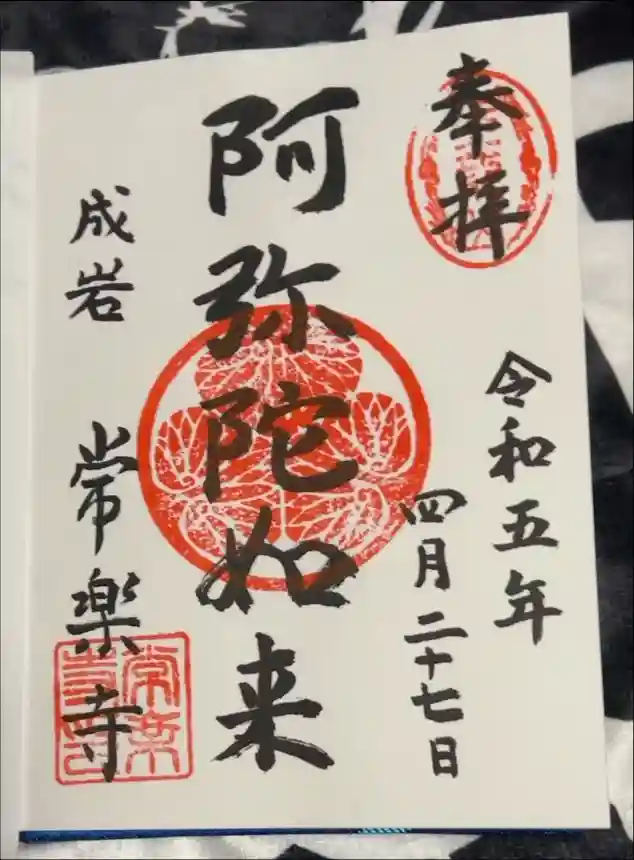 奉拝
令和五年
四月二十七日
阿弥陀如来
成岩
常楽寺
常楽寺印